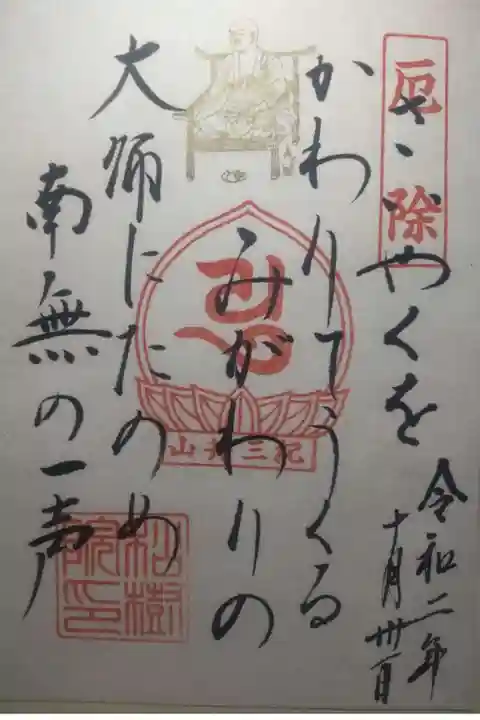 厄除
やくを
かわりてうくる
みがわりの
大師にたのめ
南無の一声
令和二年
十月卅一日
松樹
院印